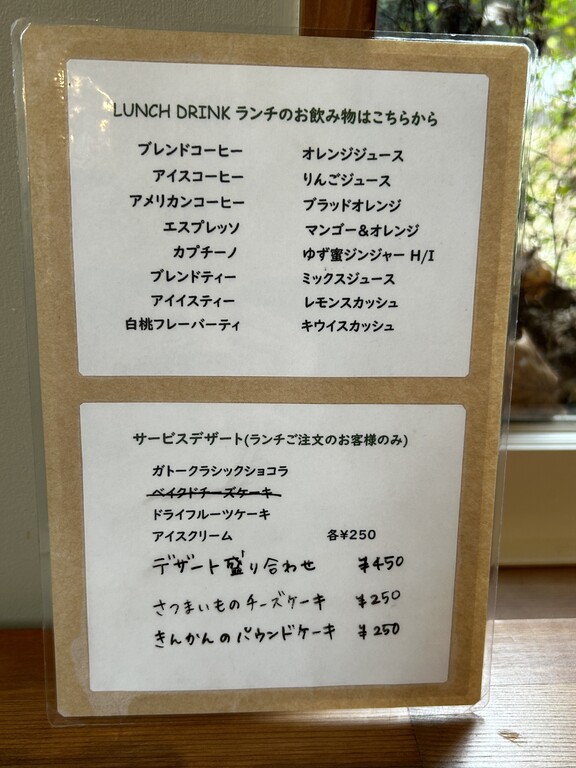 LUNCH DRINK ランチのお飲み物はこちらから
ブレンドコーヒー
アイスコーヒー
アメリカンコーヒー
エスプレッソ
カプチーノ
ブレンドティー
アイイスティー
白桃フレーバーティ
オレンジジュース
りんごジュース
ブラッドオレンジ
マンゴー&オレンジ
ゆず蜜ジンジャー H/I
ミックスジュース
レモンスカッシュ
キウイスカッシュ
サービスデザート(ランチご注文のお客様のみ)
ガトークラシックショコラ
ベイクドチーズケーキ
ドライフルーツケーキ
アイスクリーム 各¥250
デザート盛り合わせ ¥450
さつまいものチーズケーキ ¥250
きんかんのパウンドケーキ ¥250